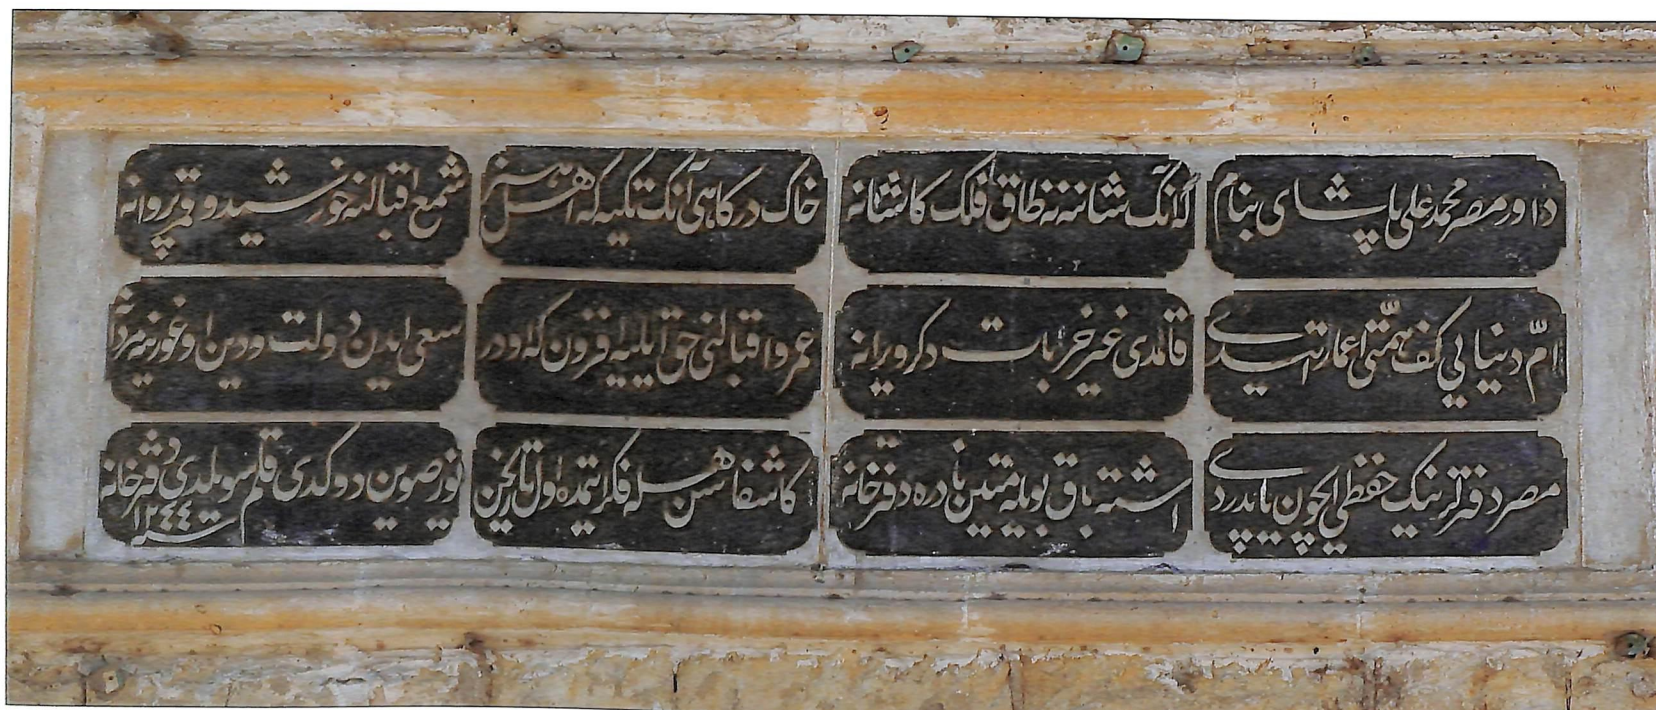 داور مصر محمد علی پاشای بنام
کآنک شاننه نه طاق فلک کاشانه
خاک درکاهی آنک تکیه که اهل هنر
شمع اقبالنه خورشید و قمر پروانه
دنیایی کف همتی اعمار ایتدی
قالمدی غیر خرابات دکر ویرانه
عمر و اقبالنی حق ایلیه افزون که اودر
سعی ایدن دولت و دین اوغورینه مردانه
مصر دفترلرینک حفظی ایچون یاپدردی
اشته باق بویله متین نادره دفترخانه
کاشفا سن هله فکر ایتمده اول تاریخن
صوین دوکدی قلم سویلدی دفترخانه
سنه ١٢٤٤